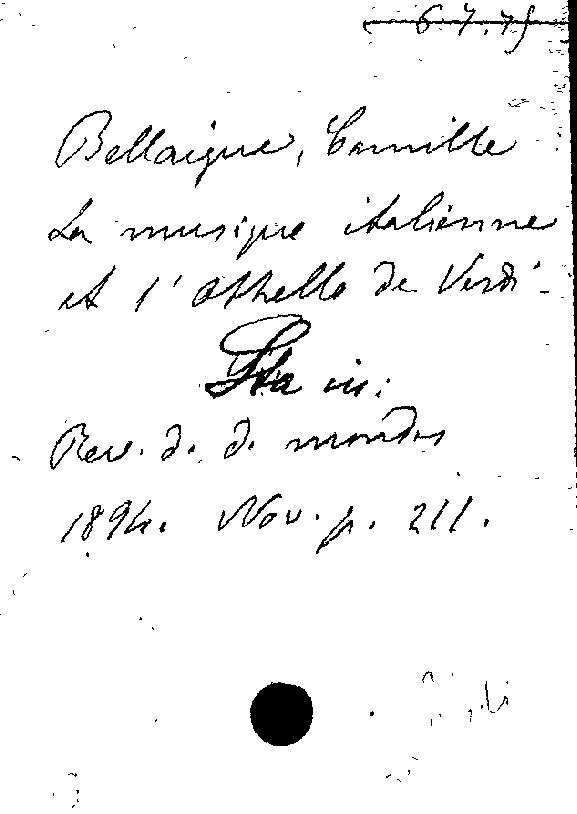 Bellaigue, Camille
La musique italienne
et l'Othello de Verdi
in:
Rev. d. d. mondes
1894. Nov. p. 211.